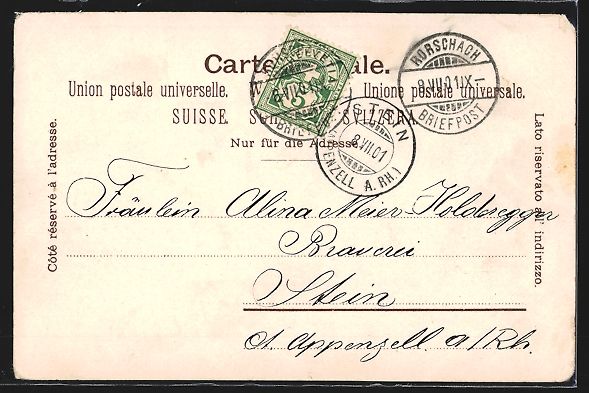 Carte postale.
Union postale universelle. Unione postale universale.
SUISSE. SVIZZERA.
Nur für die Adresse.
Côté réservé à l'adresse.
Lato riservato all' indirizzo.
HELVETIA
5
RORSCHACH
8.VII.01.IX-
BRIEFPOST
STEIN
8.VII.01
(APPENZELL A.RH.)
Fräulein Alina Meier-Holderegger
Brauerei
Stein
Ct. Appenzell a/Rh.